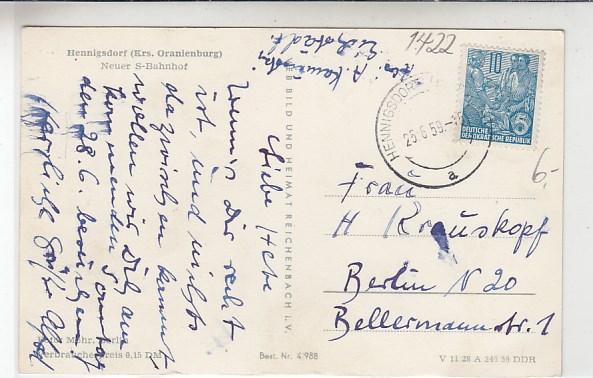 Hennigsdorf (Krs. Oranienburg)
Neuer S-Bahnhof
1422
Eichstädt
Liebe Hete
Wenn's Dir recht
ist, und nichts
dazwischen kommt
wollen wir Dich am
kommenden Sonntag
den 28.6. besuchen
Herzliche Grüße
VEB BILD UND HEIMAT REICHENBACH i. V.
HENNIGSDORF
25.6.59
a
10
5
DEUTSCHE
DEMOKRATISCHE REPUBLIK
6,-
Frau
H Krauskopf
Berlin N 20
Bellermannstr. 1
Foto: Mohr, Berlin
Verbraucherpreis 0,15 DM
Best. Nr. 4/988
V 11 28 A 245 59 DDR